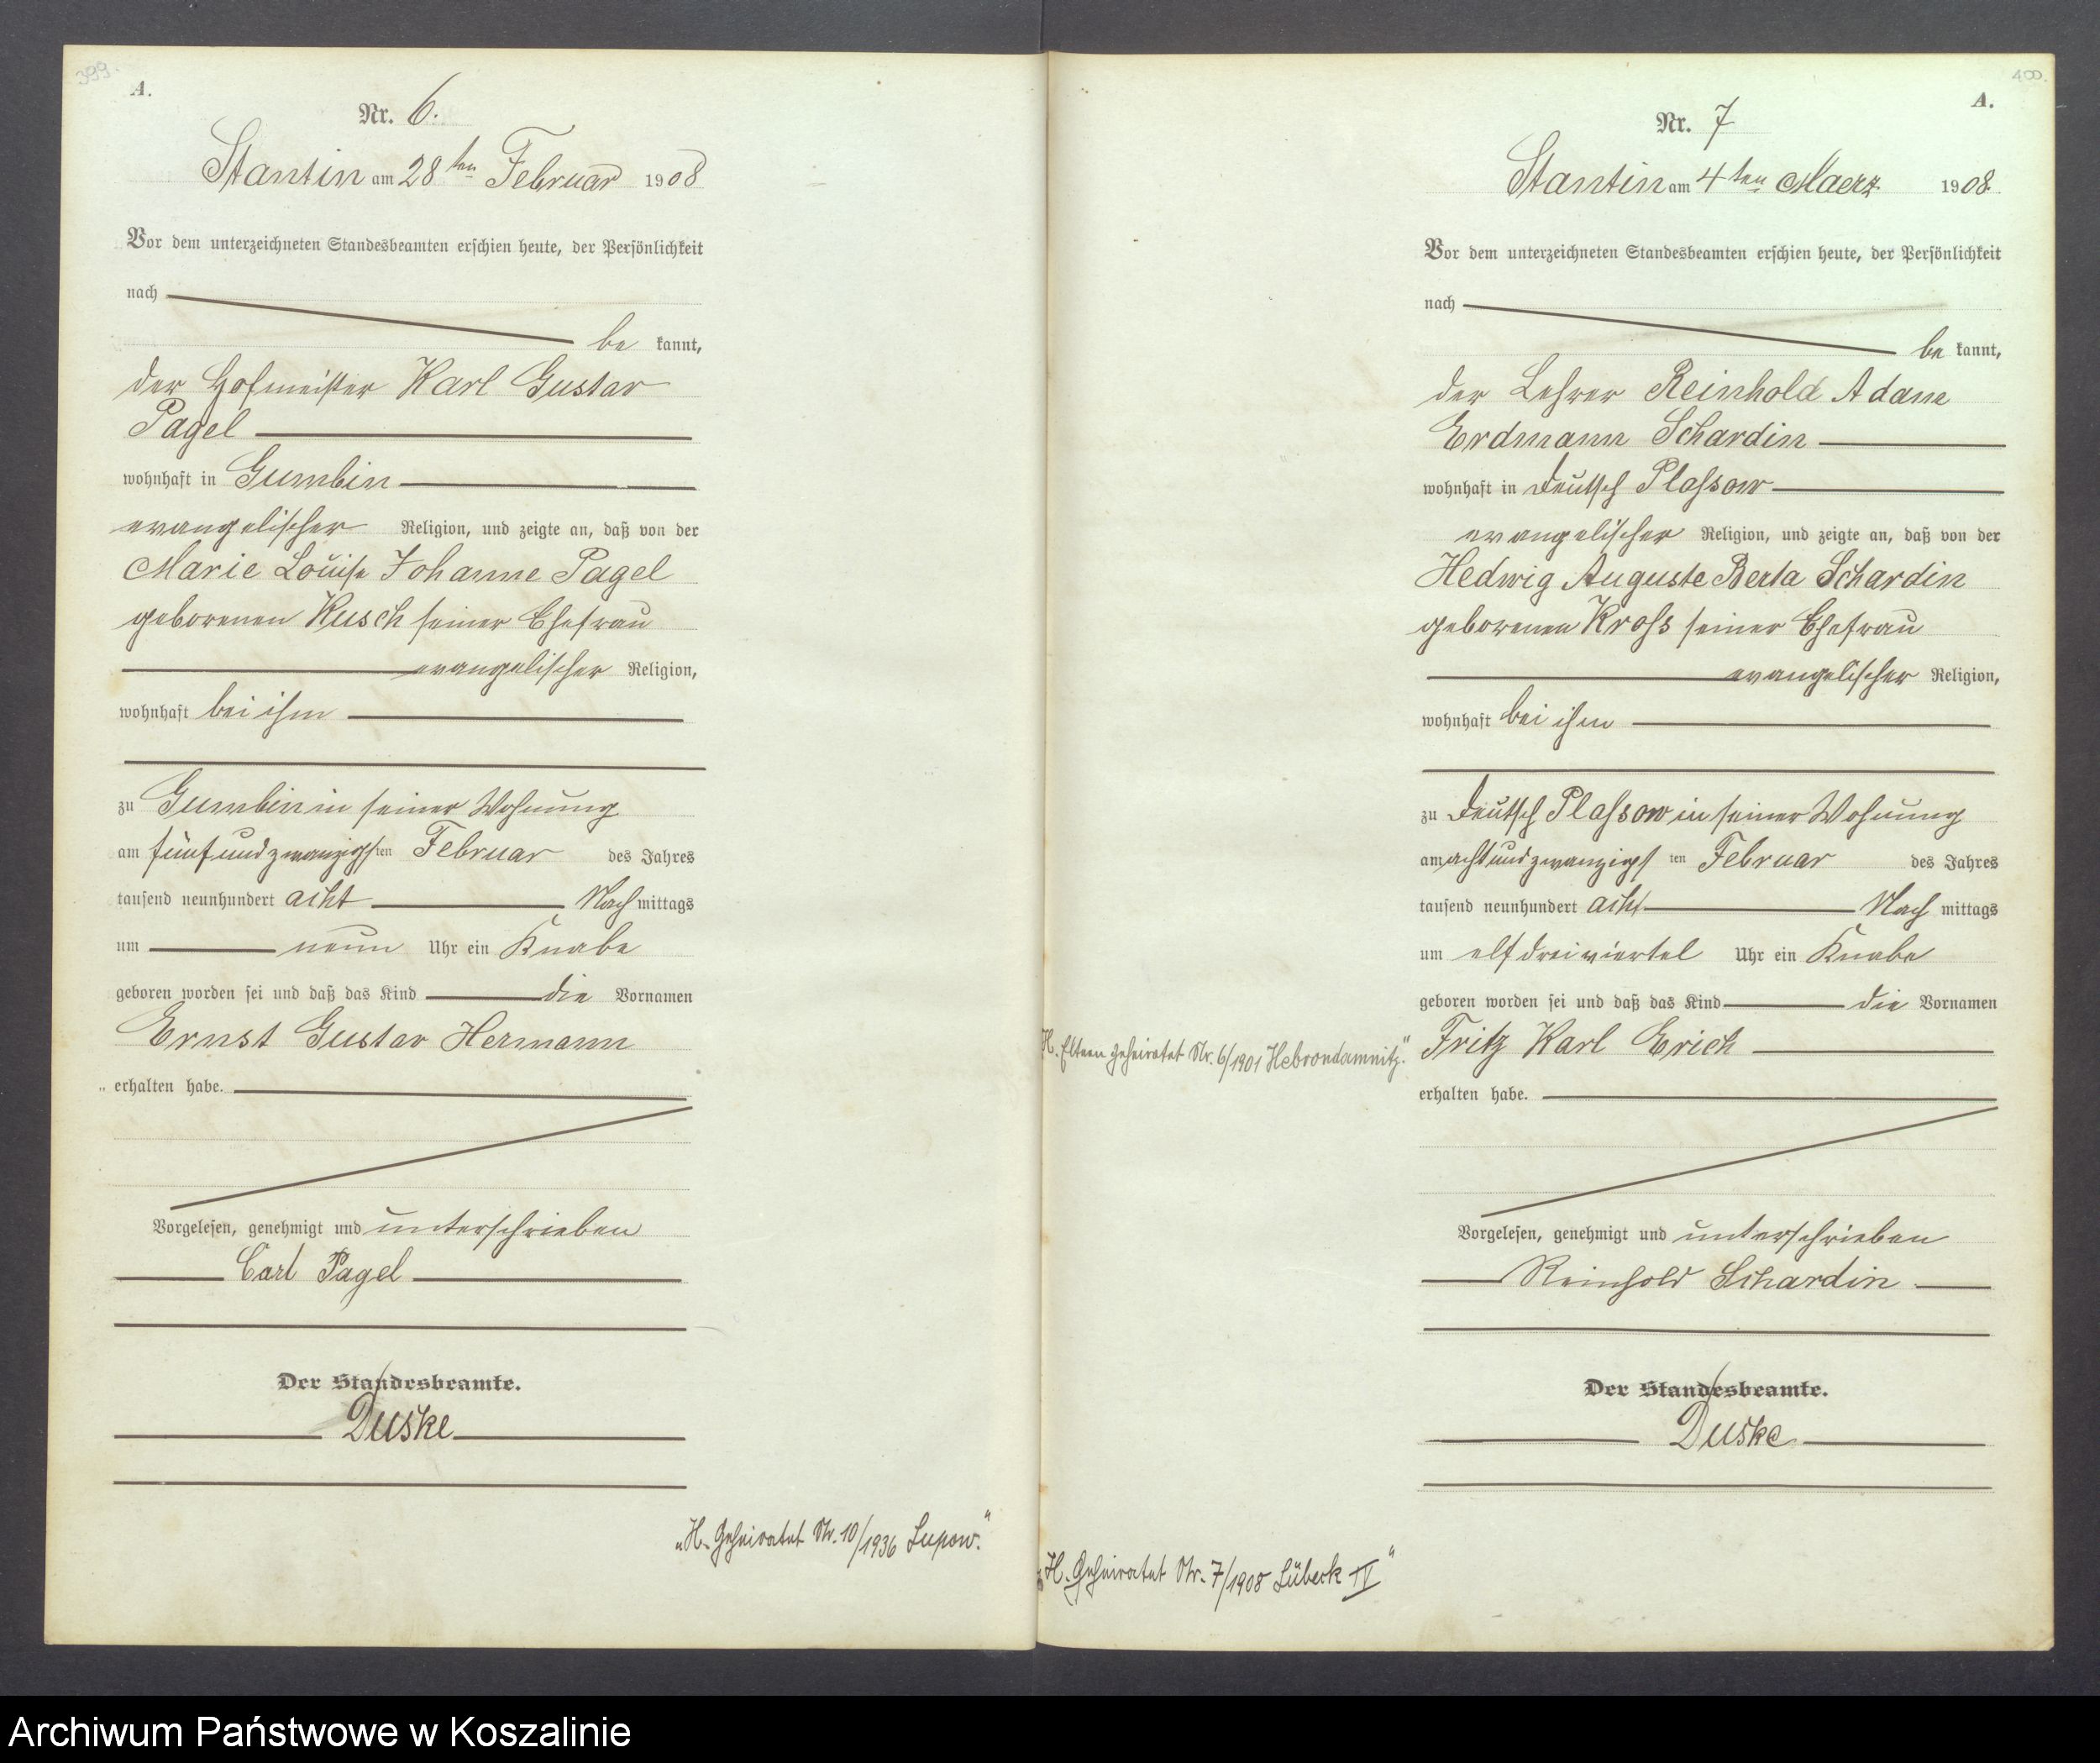 399.
A.
Nr. 6.
Stantin am 28ten Februar 1908
Vor dem unterzeichneten Standesbeamten erschien heute, der Persönlichkeit
nach
be kannt,
der Hofmeister Karl Gustav
Pagel
wohnhaft in Gumbin
evangelischer Religion, und zeigte an, daß von der
Marie Louise Johanne Pagel
geborenen Kusch seiner Ehefrau
evangelischer Religion,
wohnhaft bei ihm
zu Gumbin in seiner Wohnung
am fünfundzwanzigsten Februar des Jahres
tausend neunhundert acht Nach mittags
um neun Uhr ein Knabe
geboren worden sei und daß das Kind die Vornamen
Ernst Gustav Hermann
erhalten habe.
Vorgelesen, genehmigt und unterschrieben
Carl Pagel
Der Standesbeamte.
Duske
„H. Geheiratet Nr. 10/1936 Lupow."
400.
A.
Nr. 7
Stantin am 4ten Maerz 1908.
Vor dem unterzeichneten Standesbeamten erschien heute, der Persönlichkeit
nach
be kannt,
der Lehrer Reinhold Adam
Erdmann Schardin
wohnhaft in Deutsch Plassow
evangelischer Religion, und zeigte an, daß von der
Hedwig Auguste Berta Schardin
geborenen Kross seiner Ehefrau
evangelischer Religion,
wohnhaft bei ihm
zu Deutsch Plassow in seiner Wohnung
am achtundzwanzigsten Februar des Jahres
tausend neunhundert acht Nach mittags
um elf dreiviertel Uhr ein Knabe
geboren worden sei und daß das Kind die Vornamen
H. Eltern geheiratet Nr. 6/1901 Hebrondamnitz."
Fritz Karl Erich
erhalten habe.
Vorgelesen, genehmigt und unterschrieben
Reinhold Schardin
Der Standesbeamte.
Duske
„H. Geheiratet Nr. 7/1908 Lübeck IV"
Archiwum Państwowe w Koszalinie